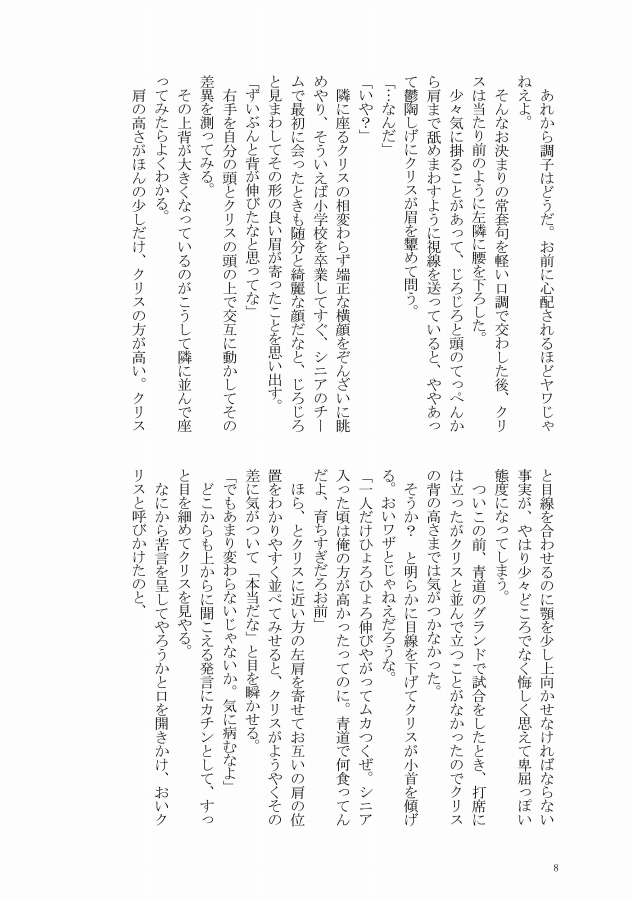 あれから調子はどうだ。お前に心配されるほどヤワじゃ
ねえよ。
　そんなお決まりの常套句を軽い口調で交わした後、クリ
スは当たり前のように左隣に腰を下ろした。
　少々気に掛ることがあって、じろじろと頭のてっぺんか
ら肩まで舐めまわすように視線を送っていると、ややあっ
て鬱陶しげにクリスが眉を顰めて問う。
「…なんだ」
「いや？」
　隣に座るクリスの相変わらず端正な横顔をぞんざいに眺
めやり、そういえば小学校を卒業してすぐ、シニアのチー
ムで最初に会ったときも随分と綺麗な顔だなと、じろじろ
と見まわしてその形の良い眉が寄ったことを思い出す。
「ずいぶんと背が伸びたなと思ってな」
　右手を自分の頭とクリスの頭の上で交互に動かしてその
差異を測ってみる。
　その上背が大きくなっているのがこうして隣に並んで座
ってみたらよくわかる。
　肩の高さがほんの少しだけ、クリスの方が高い。クリス
と目線を合わせるのに顎を少し上向かせなければならない
事実が、やはり少々どころでなく悔しく思えて卑屈っぽい
態度になってしまう。
　ついこの前、青道のグランドで試合をしたとき、打席に
は立ったがクリスと並んで立つことがなかったのでクリス
の背の高さまでは気がつかなかった。
　そうか？　と明らかに目線を下げてクリスが小首を傾げ
る。おいワザとじゃねえだろうな。
「一人だけひょろひょろ伸びやがってムカつくぜ。シニア
入った頃は俺の方が高かったってのに。青道で何食ってん
だよ、育ちすぎだろお前」
　ほら、とクリスに近い方の左肩を寄せてお互いの肩の位
置をわかりやすく並べてみせると、クリスがようやくその
差に気がついて「本当だな」と目を瞬かせる。
「でもあまり変わらないじゃないか。気に病むなよ」
　どこからも上からに聞こえる発言にカチンとして、すっ
と目を細めてクリスを見やる。
　なにから苦言を呈してやろうかと口を開きかけ、おいク
リスと呼びかけたのと、
8